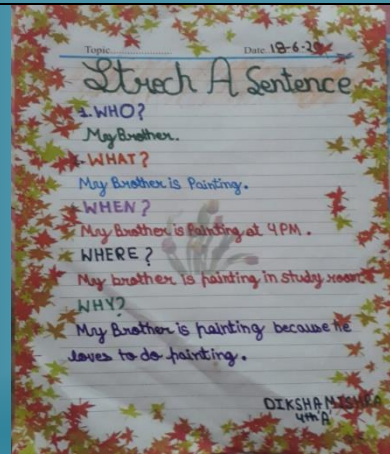 Topic.................... Date 18-6-20
Strech A Sentence
1. WHO?
My Brother.
WHAT?
My Brother is Painting.
WHEN?
My Brother is Painting at 4 PM.
WHERE?
My brother is painting in study room
WHY?
My Brother is painting because he
loves to do painting.
DIKSHA MISHRA
4th 'A'